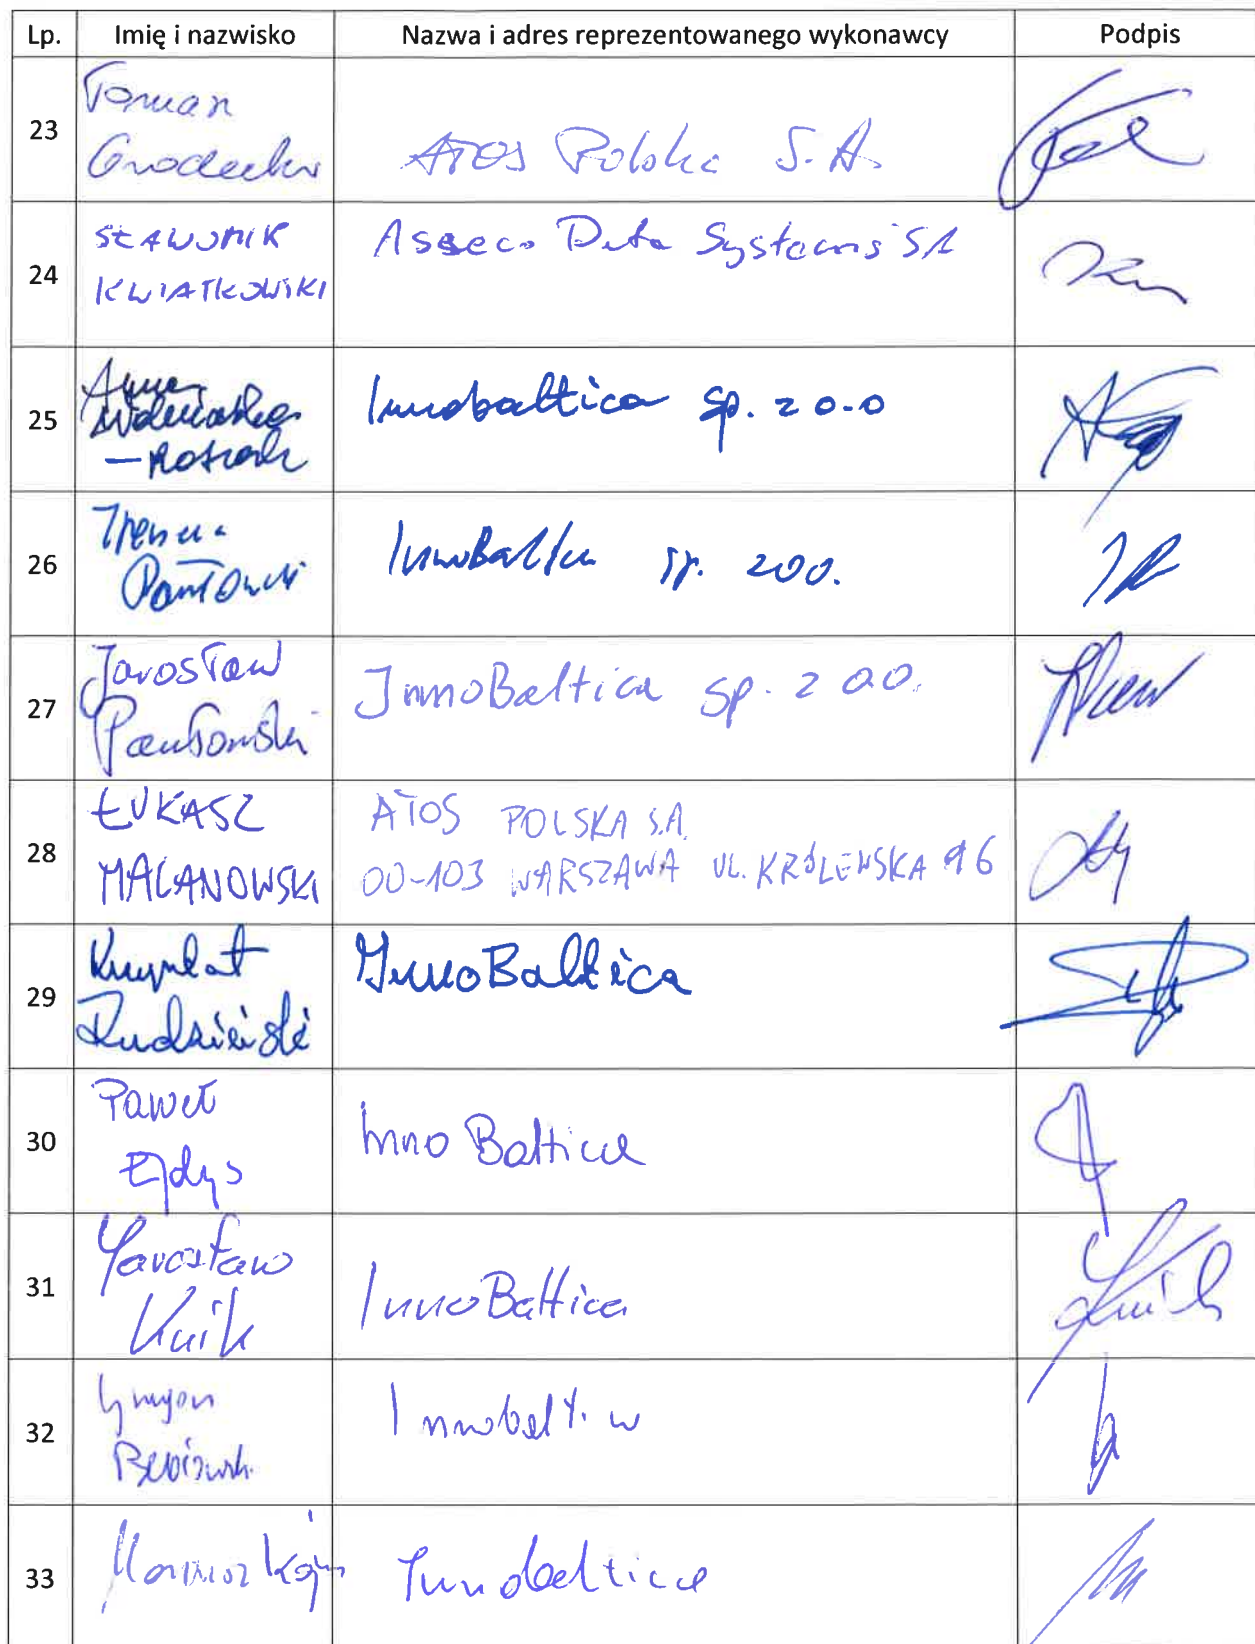 Lp. Imię i nazwisko Nazwa i adres reprezentowanego wykonawcy Podpis
23
Roman
Grodecki
ATOS Polska S.A.
24
SŁAWOMIR
KWIATKOWSKI
Asseco Data Systems SA
25
Anna
Innobaltica sp. z o.o
26
Irena
InnoBaltica sp. z o o.
27
Jarosław
Pawłowski
InnoBaltica sp. z o.o.
28
ŁUKASZ
MALANOWSKI
ATOS POLSKA S.A.
00-103 WARSZAWA UL. KRÓLEWSKA 16
29
Rudziński
InnoBaltica
30
Paweł
Ejdys
Inno Baltica
31
Jarosław
Kuik
InnoBaltica
32
Innobaltica
33
Mariusz
Innobaltica